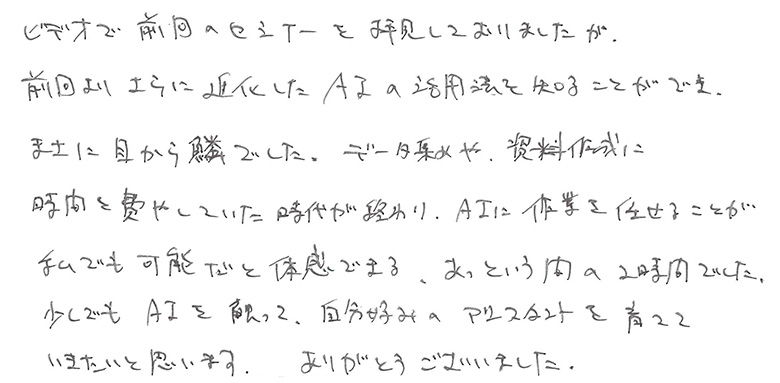 ビデオで前回のセミナーを拝見しておりましたが、
前回よりさらに進化したAIの活用法を知ることができ、
まさに目から鱗でした。データ集めや、資料作成に
時間を費やしていた時代が終わり、AIに作業を任せることが
私でも可能だと体感できる、あっという間の2時間でした。
少しでもAIを触って、自分好みのアシスタントを育てて
いきたいと思います。ありがとうございました。